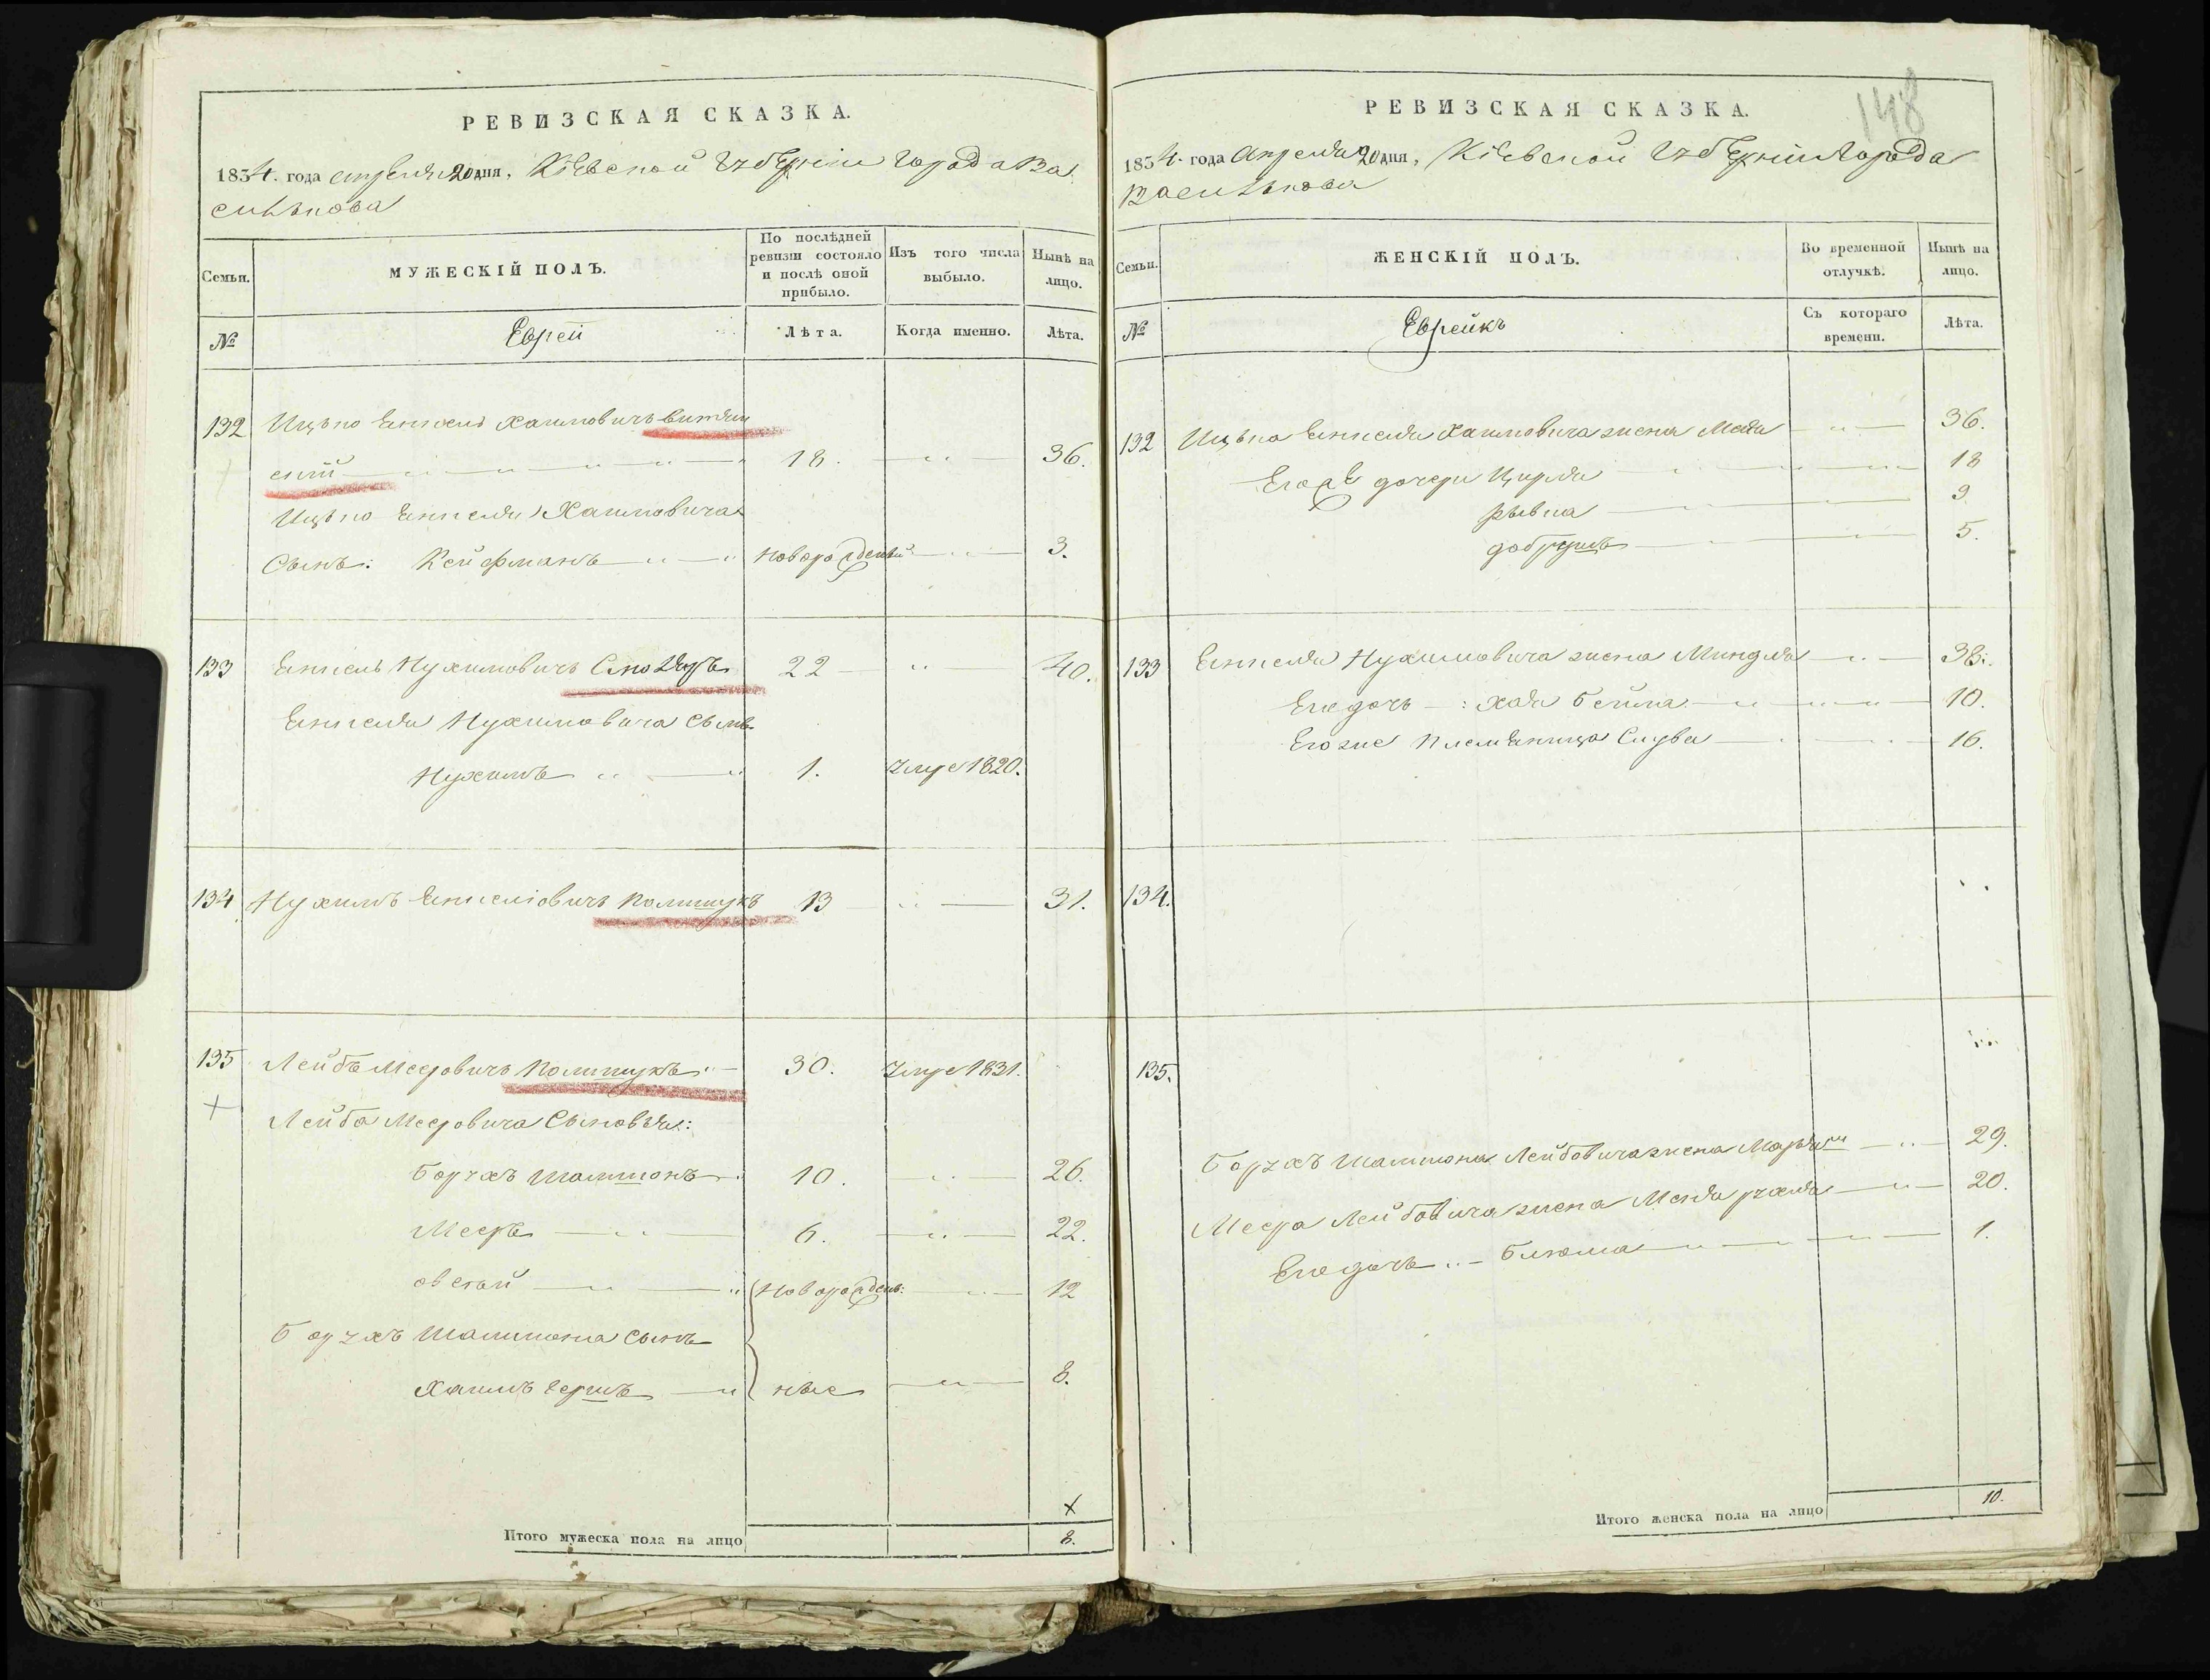 РЕВИЗСКАЯ СКАЗКА.
1834. года апреля 20 дня, Кіевской Губерніи города Ва
силькова
Семьи.
МУЖЕСКІЙ ПОЛЪ.
По послѣдней ревизіи состояло и послѣ оной прибыло.
Изъ того числа выбыло.
Нынѣ на лицо.
№
Еврей
Лѣта.
Когда именно.
Лѣта.
132 Ицько Енкель Хаимовичъ
18. 36.
Ицько Енкеля Хаимовича
Сынъ: Кейфманъ новорожденый 3.
133 Енкель Нухимовичъ 22 40.
Енкеля Нухимовича сынъ
Нухимъ 1. Умре 1820.
134 Нухимъ Енкеліовичъ Полищукъ 13 31.
135 Лейбъ Мееровичъ Полищукъ 30. Умре 1831.
Лейба Мееровича Сыновья:
Борухъ Шалимонъ 10. 26.
Мееръ 6. 22.
овсей новорожден: 12
Борухъ Шалимона сынъ
Хаимъ Герш ные 8.
Итого мужеска пола на лицо 8.
148
РЕВИЗСКАЯ СКАЗКА.
1834. года Апреля 20 дня, Кіевской Губерніи Города
Василькова
Семьи.
ЖЕНСКІЙ ПОЛЪ.
Во временной отлучкѣ.
Нынѣ на лицо.
№
Еврейкъ
Съ котораго времени.
Лѣта.
132 Ицька Енкеля Хаимовича жена 36.
Его же дочери Цирля 18
Рывка 9
добрушъ 5.
133 Енкеля Нухимовича жена Миндля 38.
Его дочь: Хая Бейла 10.
Его же племенница Слува 16.
134.
135.
Борухъ Шалимона Лейбовича жена Марьям 29.
Меера Лейбовича жена 20.
Его дочь Блюма 1.
Итого женска пола на лицо 10.